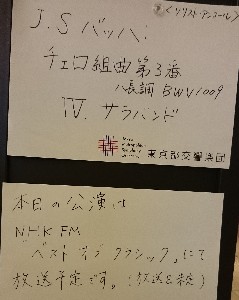 〈ソリスト・アンコール〉
J.S バッハ:
チェロ組曲第3番
ハ長調 BWV1009
IV. サラバンド
東京都交響楽団
本日の公演は
NHK FM
「ベスト オブ クラシック」にて
放送予定です。